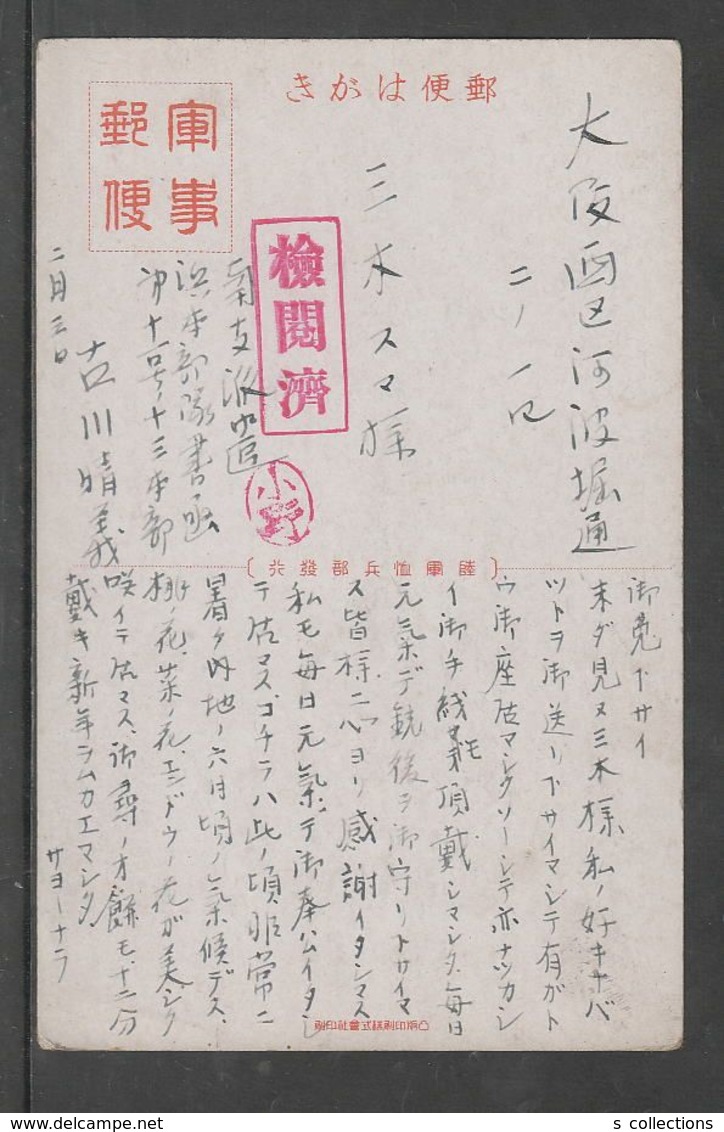 郵便はがき
軍事
郵便
大阪西区河波堀通
二ノ一〇
三木スマ様
檢閲濟
小野
南支派遣
浜本部隊書函
第十一号ノ十三本部
古川晴義
二月三日
〔陸軍恤兵部發行〕
御免下サイ
末ダ見ヌ三木様、私ノ好キキャバ
ツトヲ御送リ下サイマシテ有ガト
ウ御座居マシタソーシテ亦ナツカシ
イ御手紙モ頂戴シマシタ、毎日
元氣デ銃後ヲ御守リ下サイマ
ス皆様ニ心ヨリ感謝イタシマス
私モ毎日元氣デ御奉公イタシ
テ居マス、コチラハ此ノ頃非常ニ
暑ク内地ノ六月頃ノ氣候デス、
桃ノ花、菜ノ花、エンドウノ花ガ美シク
咲イテ居マス、御尋ノオ餅モ十二分
戴キ新年ヲムカエマシタ、
サヨーナラ
凸版印刷株式會社印刷
s collections